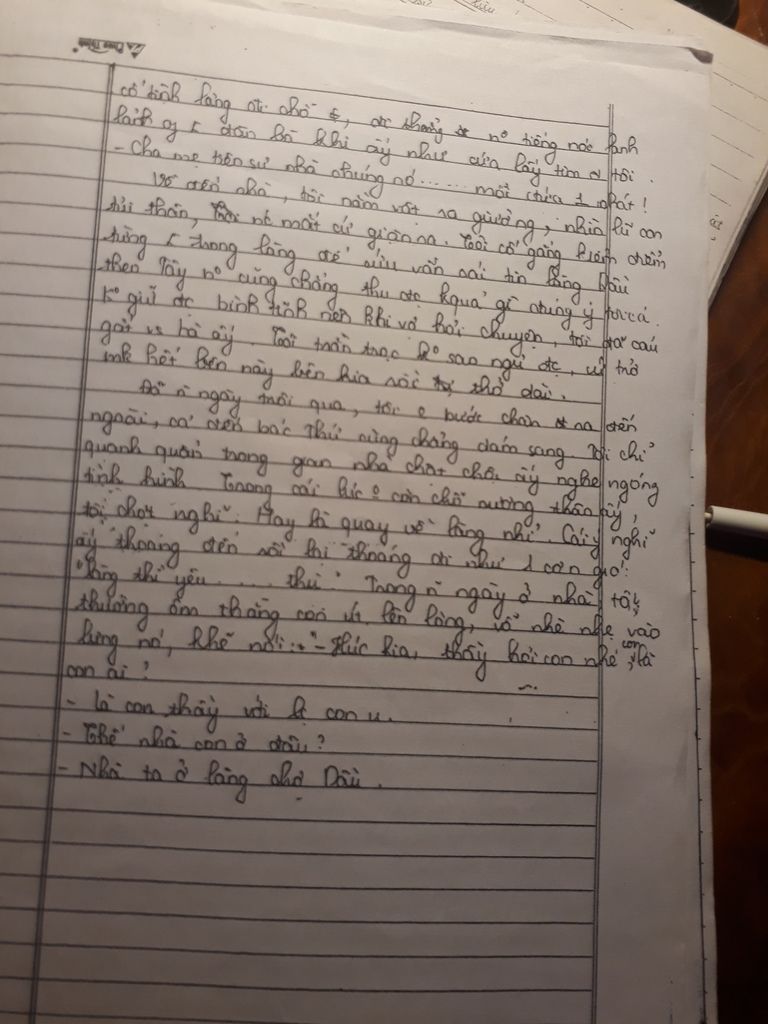 cố tình lảng đi chỗ #, đc thoảng nº tiếng nói lanh
lảnh of 1 đàn bà khi ấy như cứa lấy tim tôi.
- Cha mẹ tiên sư nhà chúng nó...... mỗi đứa 1 nhát!
Về đến nhà, tôi nằm vật ra giường, nhìn lũ con
tủi thân, nc mắt cứ giàn ra. Tôi cố gắng kiểm điểm
từng trong làng để vẫn cái tin làng Dầu
theo Tây nº cũng chẳng thu đc kquả gì đúng ý tôi cả.
Kº giữ đc bình tĩnh nên khi vợ hỏi chuyện, tôi đã cáu
gắt vs bà ấy. Tôi trằn trọc kº sao ngủ đc, cứ trở
mk hết bên này bên kia rồi thở dài.
Đã n ngày trôi qua, tôi bước chân ra đến
ngoài, cả đến bác Thứ cũng chẳng dám sang. Tôi chỉ
quanh quẩn trong gian nhà chật chội ấy nghe ngóng
tình hình. Trong cái lúc còn chỗ nương thân ấy,
tôi chợt nghĩ: Hay là quay về làng nhỉ. Cái ý nghĩ
ấy thoáng đến rồi lại thoáng đi như 1 cơn gió:
"Làng thì yêu .... thù." Trong n ngày ở nhà, tôi
thường ôm thằng con út lên lòng, vỗ nhè nhẹ vào
lưng nó, khẽ nói: "- Húc kia, thầy hỏi con nhé, con là
con ai?
- Là con thầy với con u.
- Thế nhà con ở đâu?
- Nhà ta ở làng chợ Dầu.